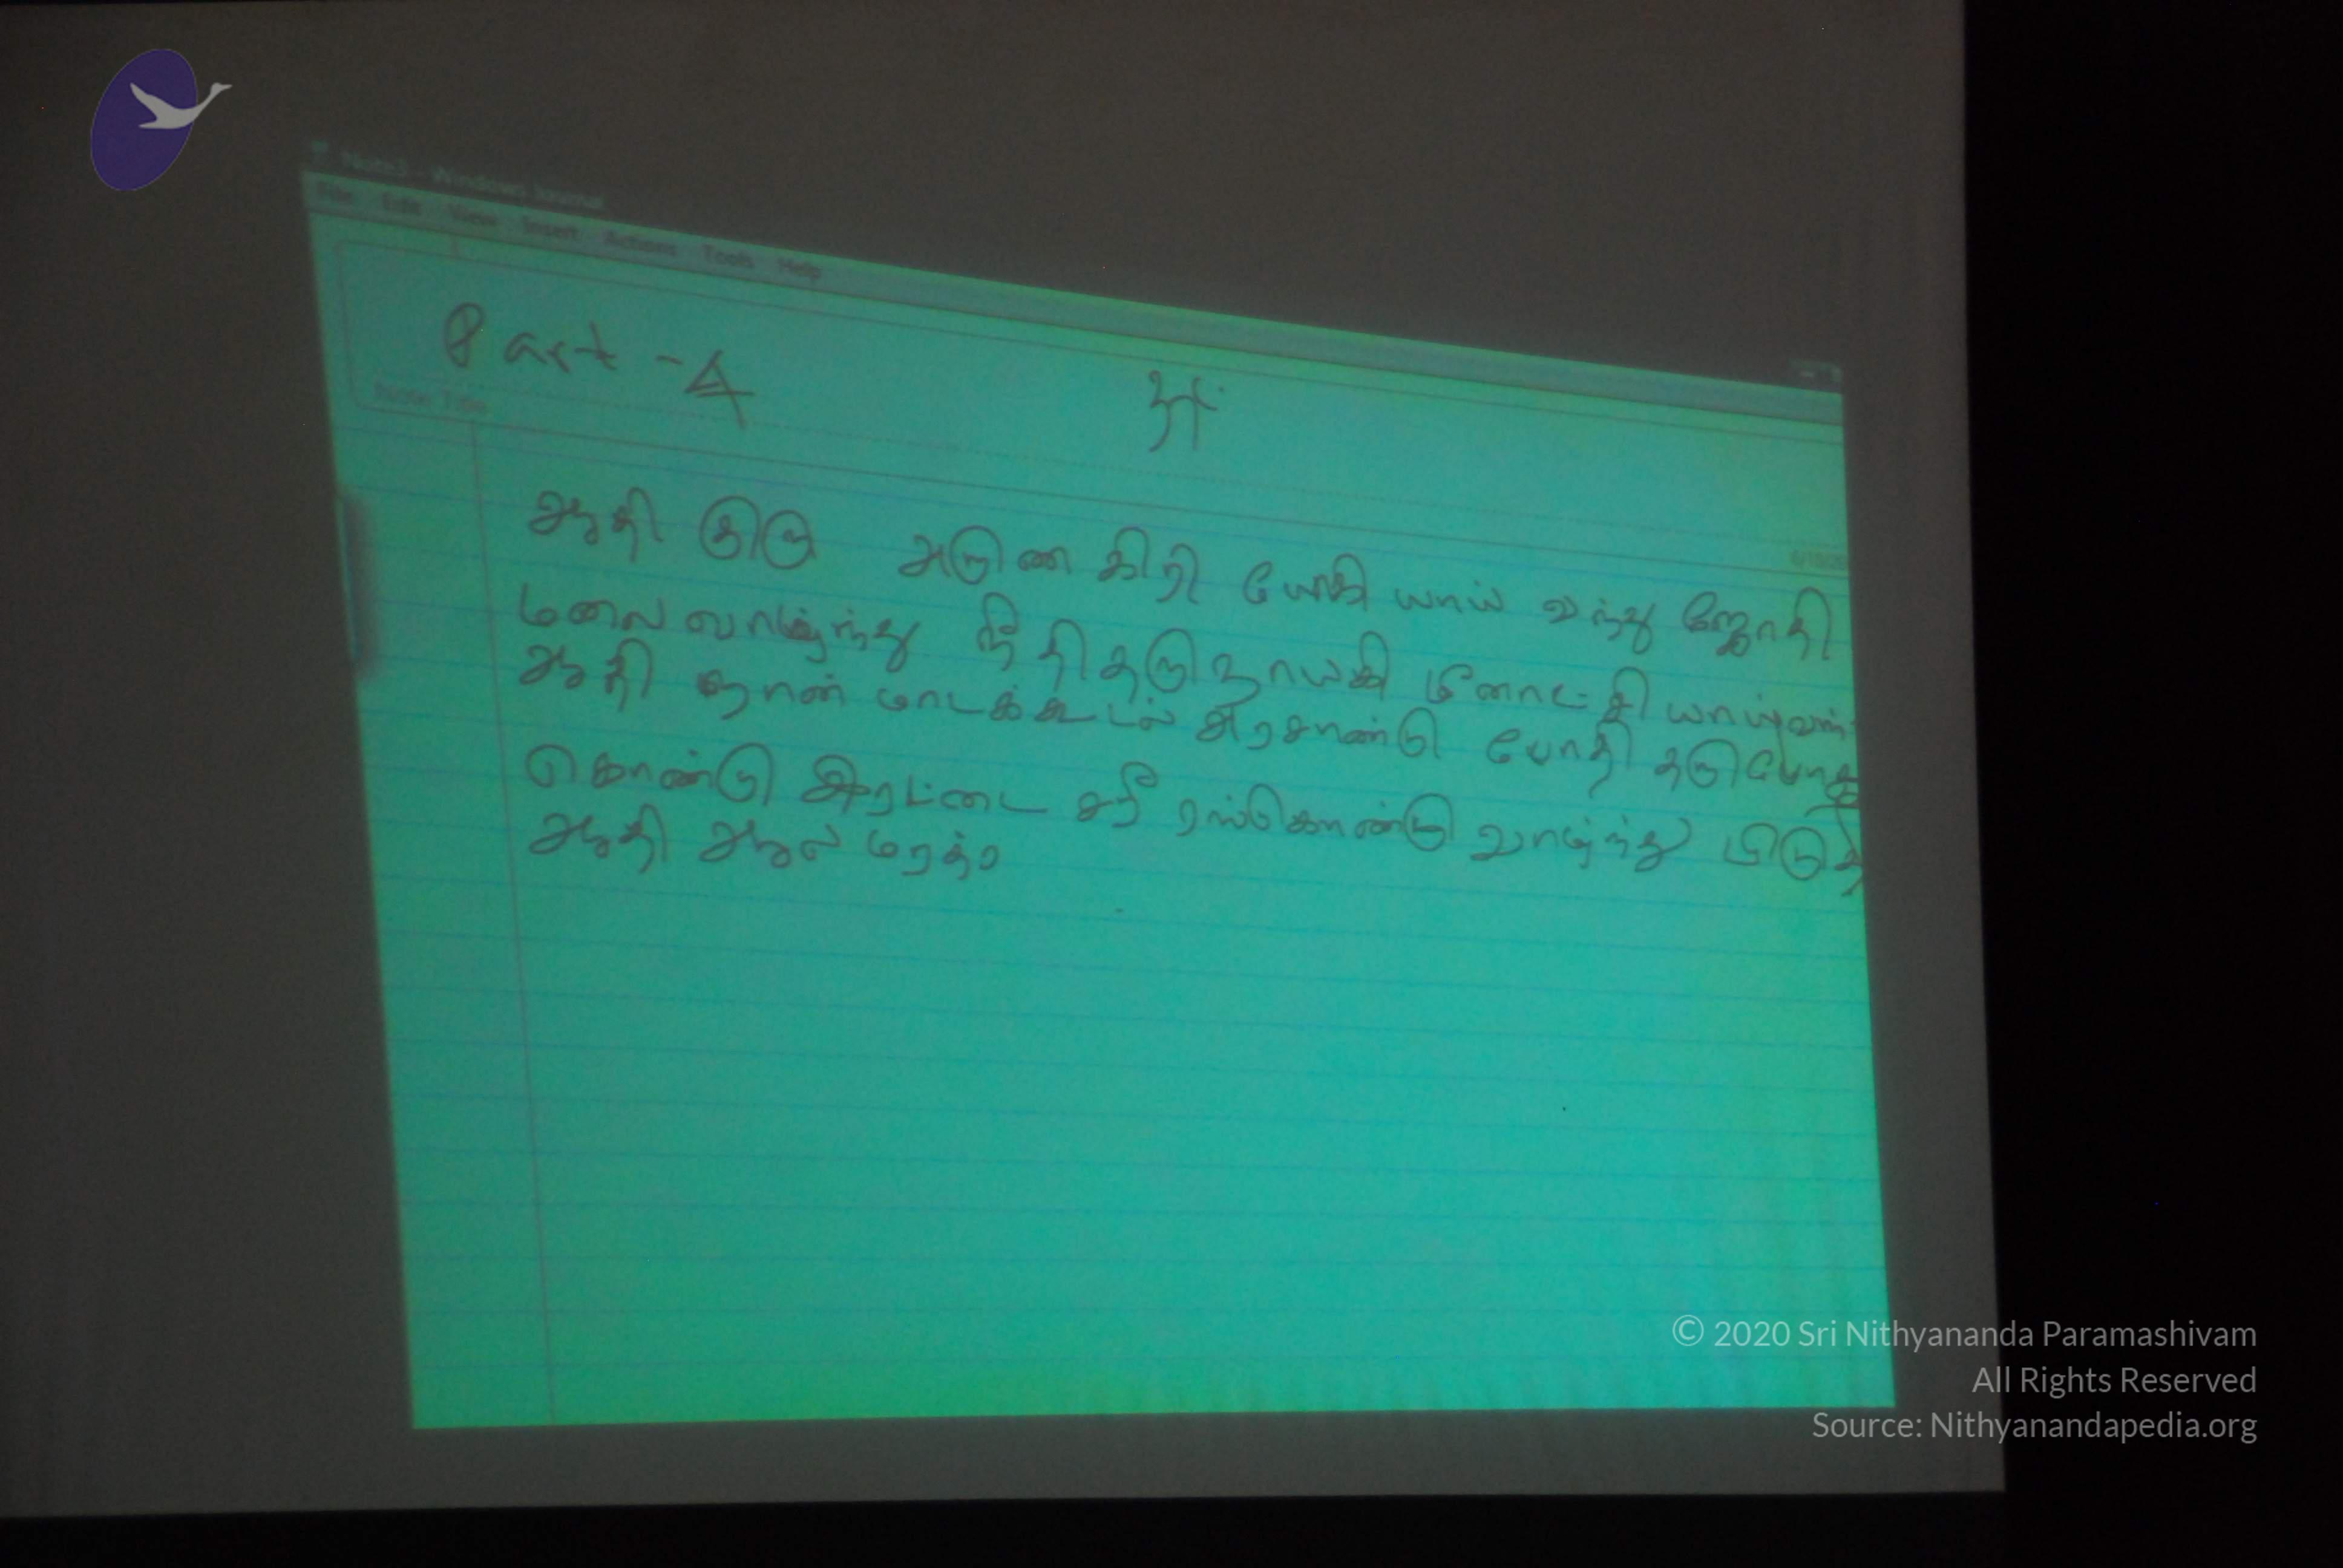 Note3 - Windows Journal
File Edit View Insert Actions Tools Help
Part - 4
Note Title
ஆதி குரு அருண கிரி யோகி யாய் வந்து ஜோதி
மலை வாழ்ந்து நீதி தரு நாயகி மீனாட்சி யாய்
ஆதி நான் மாடக்கூடல் அரசாண்டு போதி தரு
கொண்டு இரட்டை சரீரங்கொண்டு வாழ்ந்து
ஆதி ஆல மரத்
© 2020 Sri Nithyananda Paramashivam
All Rights Reserved
Source: Nithyanandapedia.org